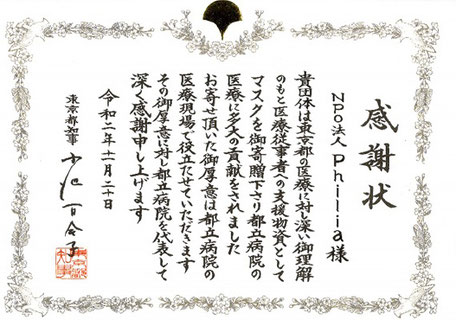 感謝状
NPO法人 Philia 様
貴団体は東京都の医療に対し深い御理解
のもと医療従事者への支援物資として
マスクを御寄贈下さり都立病院の
医療に多大の貢献をされました
お寄せ頂いた御厚意は都立病院の
医療現場で役立たせていただきます
その御厚意に対し都立病院を代表して
深く感謝申し上げます
令和二年十一月二十日
東京都知事 小池百合子